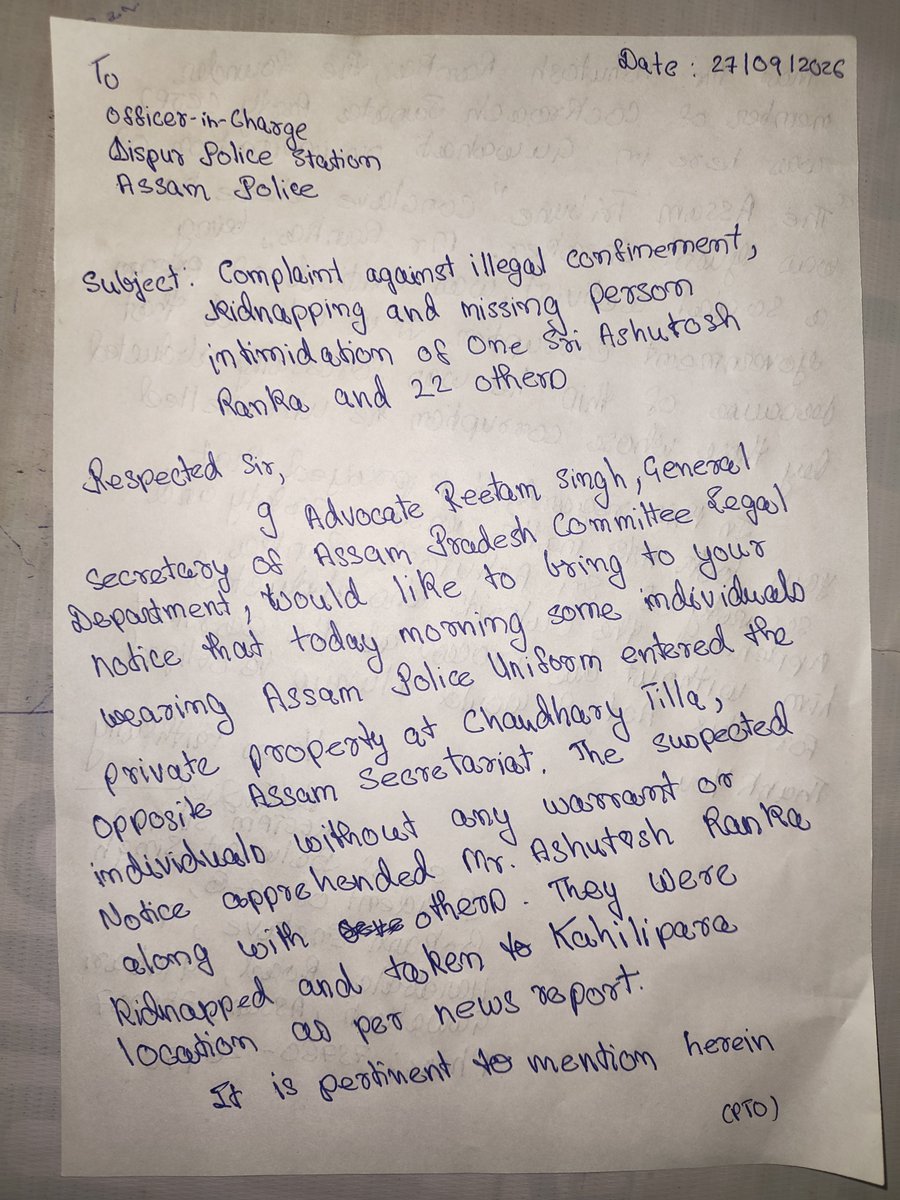 To
Date: 27/09/2026
Officer-in-Charge
Dispur Police Station
Assam Police
Subject: Complaint against illegal confinement,
Kidnapping and missing person
intimidation of one Sri Ashutosh
Ranka and 22 others
Respected Sir,
I Advocate Reetam Singh, General
Secretary of Assam Pradesh Committee Legal
Department, would like to bring to your
notice that today morning some individuals
wearing Assam Police Uniform entered the
private property at Chaudhary Tilla,
opposite Assam Secretariat. The suspected
individuals without any warrant or
Notice apprehended Mr. Ashutosh Ranka
along with others. They were
Kidnapped and taken to Kahilipara
location as per news report.
It is pertinent to mention herein
(PTO)